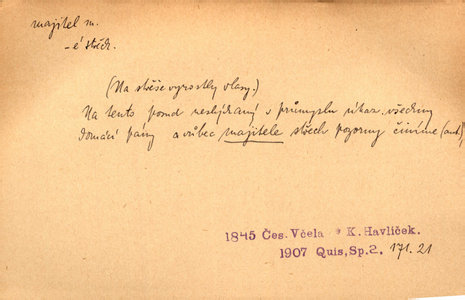 majitel m.
-é střech.
(Na střeše vyrostly vlasy.)
Na tento posud neslýchaný v průmyslu úkaz všechny
domácí pány a vůbec majitele střech pozorny činíme (aut.)
1845 Čes. Včela * K. Havlíček.
1907 Quis, Sp.2. 171.21